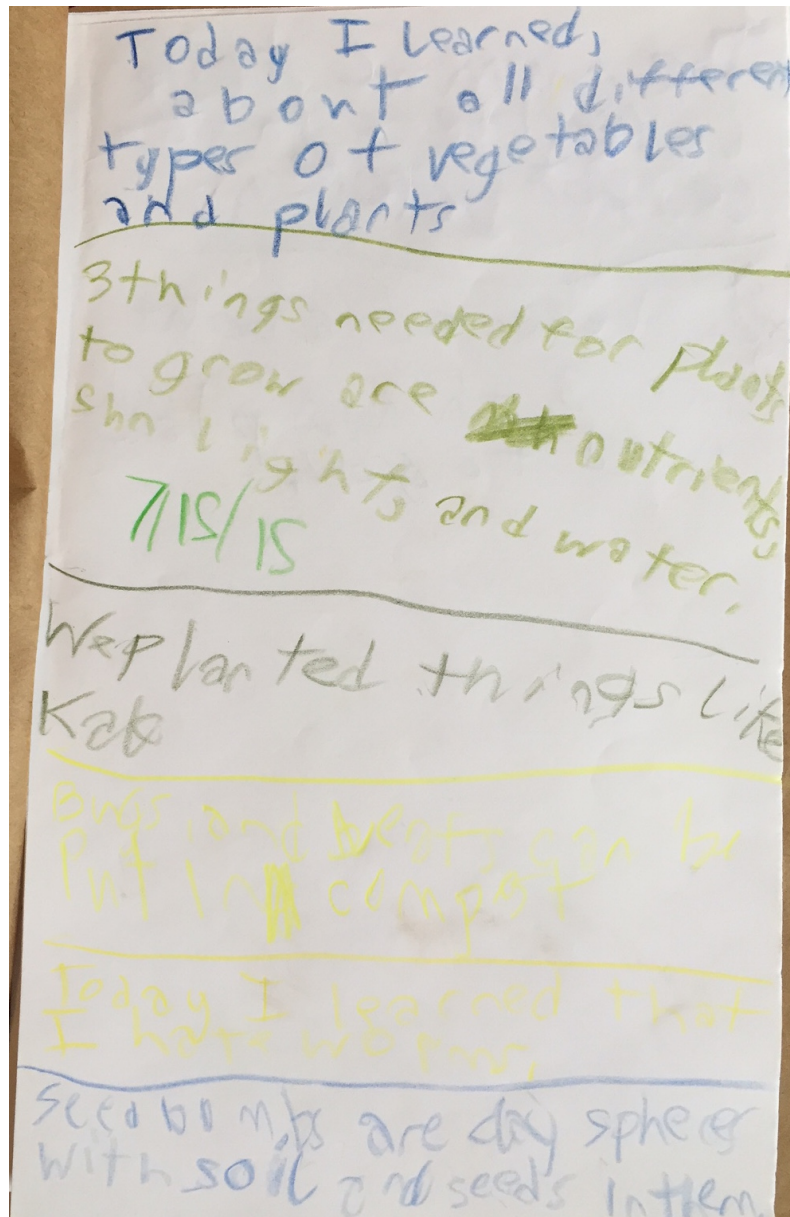 Today I Learned,
about all differen
types of vegetables
and plants
3 things needed for plants
to grow are nutrients,
Sun lights, and water.
7/15/15
We planted things like
Kale
Bugs and beats can be
Put in compost
Today I learned that
I hate worms.
Seed bombs are clay spheres
with soil and seeds in them.